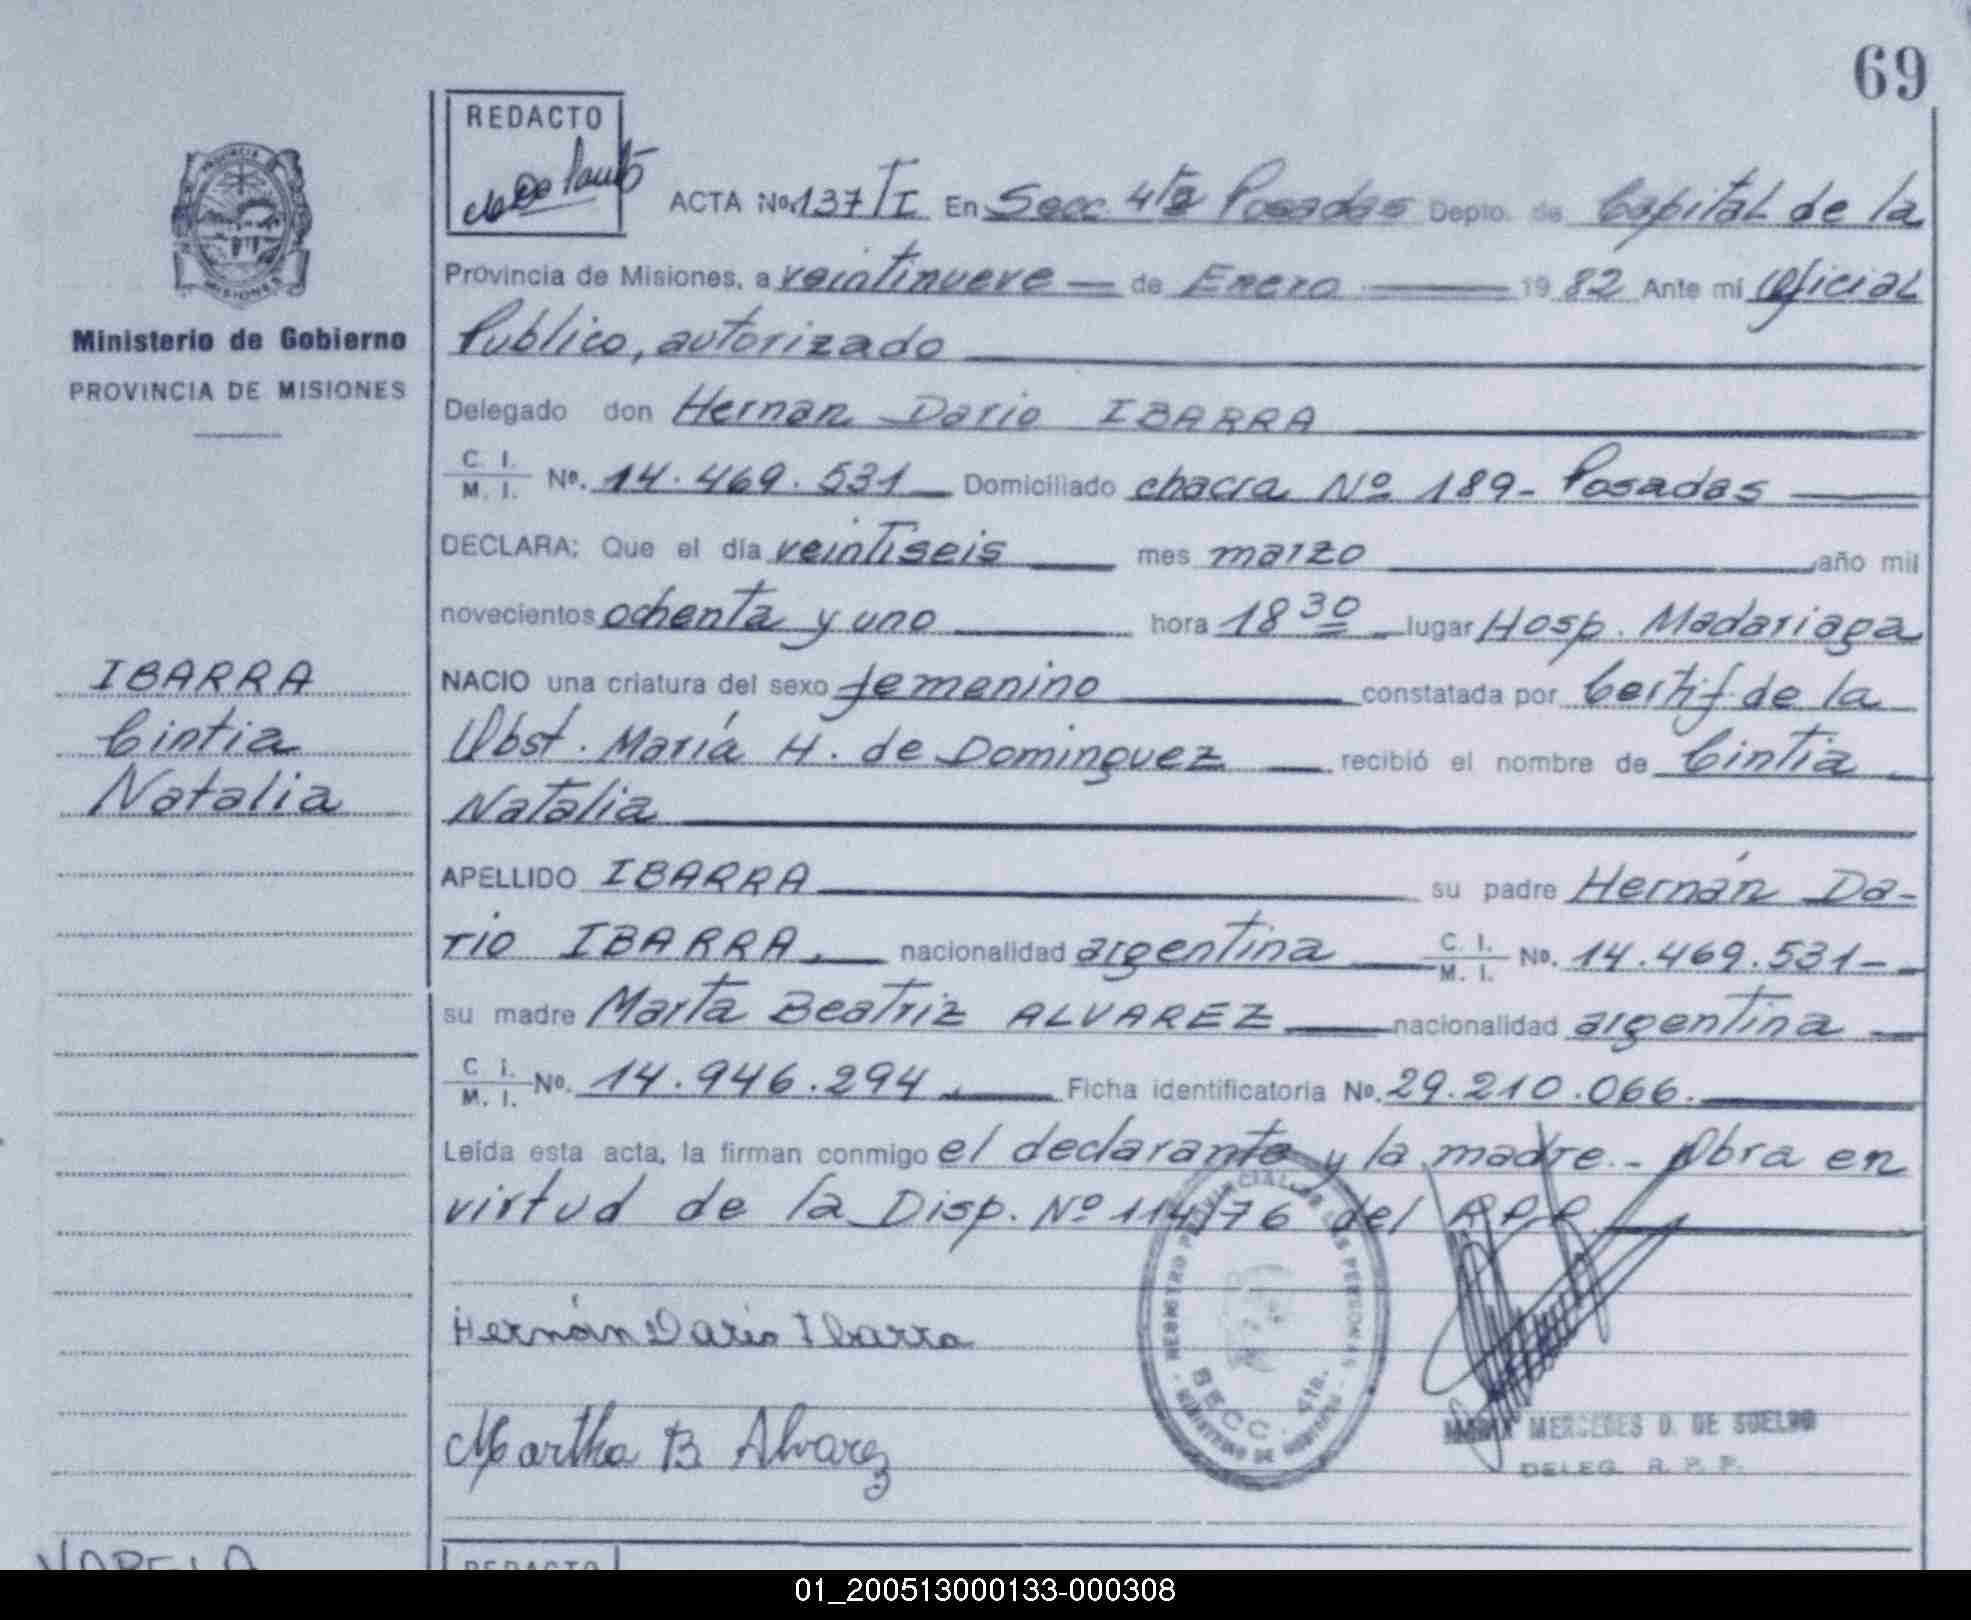 69
REDACTO
ACTA Nº 137/TI En Secc. 4ta Posadas Depto. de Capital de la
Provincia de Misiones, a veintinueve de Enero 1982 Ante mi Oficial
Publico, autorizado
Delegado don Hernan Dario IBARRA
C. I. / M. I. Nº. 14.469.531 Domiciliado chacra Nº 189- Posadas
DECLARA: Que el día veintiseis mes marzo año mil
novecientos ochenta y uno hora 18 30 lugar Hosp. Madariaga
NACIO una criatura del sexo femenino constatada por Certif. de la
Obst. María H. de Dominguez recibió el nombre de Cintia
Natalia
APELLIDO IBARRA su padre Hernán Da-
rio IBARRA. nacionalidad argentina C. I. / M. I. Nº. 14.469.531-
su madre Marta Beatriz ALVAREZ nacionalidad argentina
C. I. / M. I. Nº. 14.946.294. Ficha identificatoria Nº. 29.210.066.
Leída esta acta, la firman conmigo el declarante y la madre.- Obra en
virtud de la Disp. Nº 114/76 del R.P.P.
Hernán Dario Ibarra
Martha B Alvarez
PROVINCIA DE MISIONES
Ministerio de Gobierno
PROVINCIA DE MISIONES
IBARRA
Cintia
Natalia
REGISTRO PROVINCIAL DE LAS PERSONAS
SECC. 4ta.
MINISTERIO DE GOBIERNO
MERCEDES D. DE SUELDO
DELEG. R. P. P.
VARELA
REDACTO
01_200513000133-000308